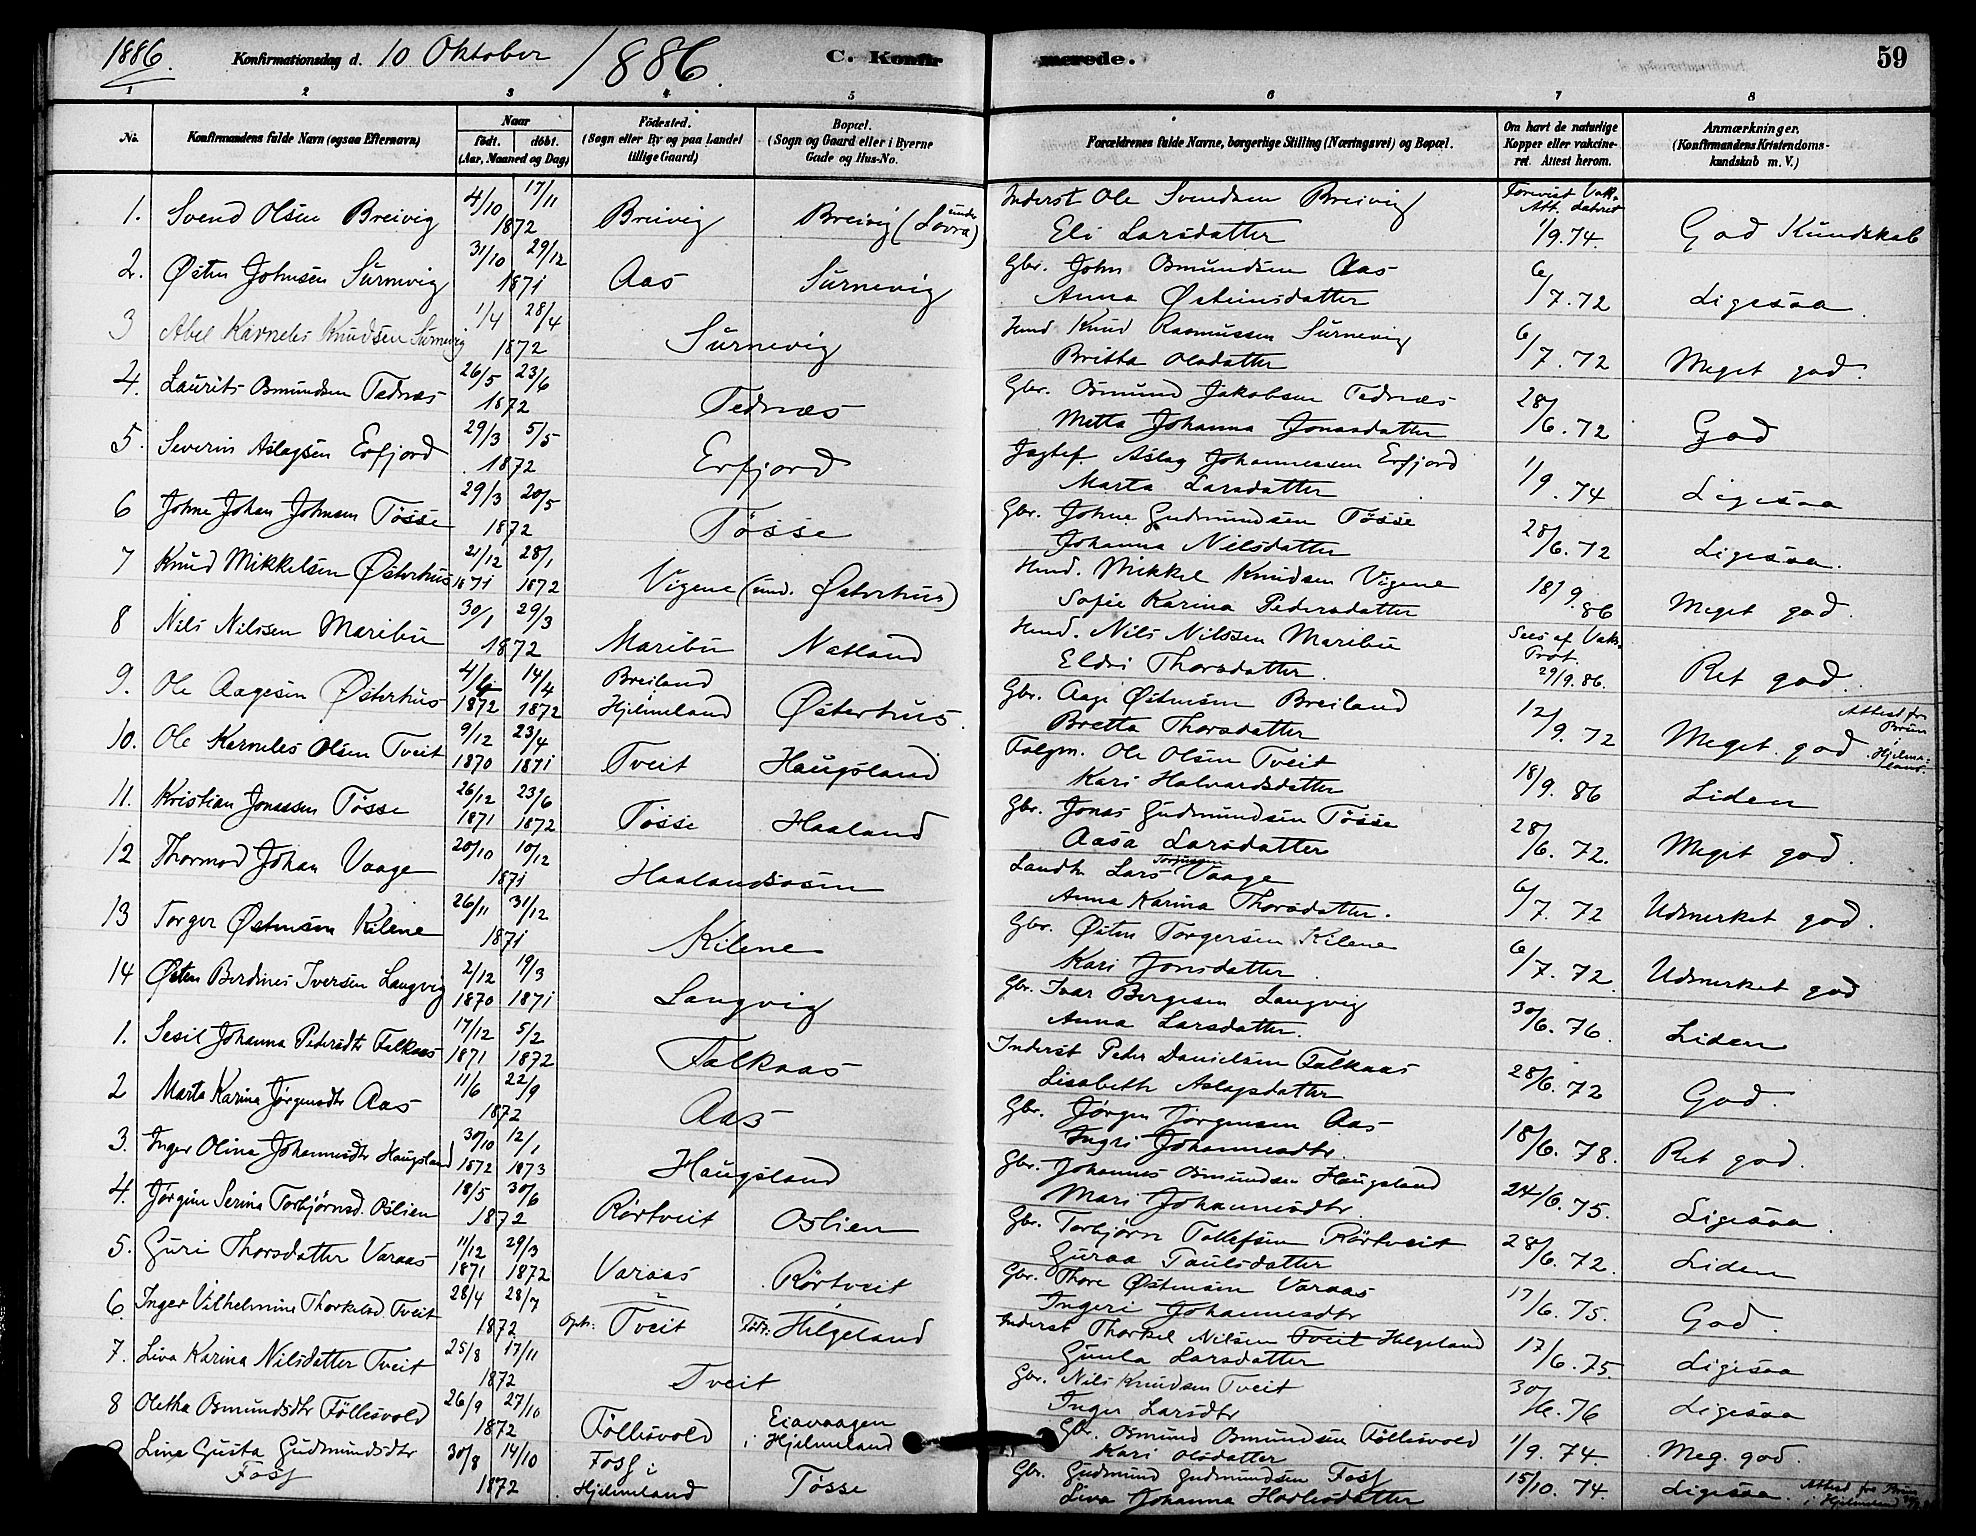 1886. Konfirmationsdag d. 10 Oktober 1886. C. Konfir merede. 59
1 2 3 4 5 6 7 8
No. Konfirmandens fulde Navn (ogsaa Efternavn) Naar født. døbt. (Aar, Maaned og Dag) Fødested. (Sogn eller By og paa Landet tillige Gaard) Bopæl. (Sogn og Gaard eller i Byerne Gade og Hus-No. Forældrenes fulde Navne, borgerlige Stilling (Næringsvei) og Bopæl. Om havt de naturlige Kopper eller vakcineret. Attest herom. Anmærkninger. (Konfirmandens Kristendomskundskab m. V.)
1. Svend Olsen Breivig 4/10 17/11 1872 Breivig Breivig (under Lovra) Inderst Ole Svendsen Breivig Forevist Vakc. Att. dateret
Eli Larsdatter 1/9.74. God Kundskab
2. Østen Johnsen Surnevig 31/10 29/12 1871 Aas Surnevig Gbr. John Osmundsen Aas
Anna Østeinsdatter 6/7.72 Ligesaa.
3 Abel Karneles Knudsen Surnevig 1/4 28/4 1872 Surnevig Hmd Knud Rasmussen Surnevig
Britha Olsdatter 6/7.72 Meget god.
4. Laurits Osmundsen Tednæs 26/5 23/6 1872 Tednæs Gbr. Osmund Jakobsen Tednæs
Metta Johanna Jonasdatter 28/6.72 God
5. Severin Aslagsen Erfjord 29/3 5/5 1872 Erfjord Jagtef. Aslag Johannessen Erfjord
Marta Larsdatter 1/9.74 Ligesaa
6 Johne Johan Johnsen Tøsse 29/3 20/5 1872 Tøsse Gbr. Johne Gudmundsen Tøsse
Johanna Nilsdatter 28/6.72 Ligesaa.
7 Knud Mikkelsen Østerhus 21/12 28/1 1871 1872 Vigene (und. Østerhus) Hmd. Mikkel Knudsen Vigene
Sofie Karina Pedersdatter 18/9.86 Meget god.
8 Nils Nilssen Maribu 30/1 29/3 1872 Maribu Natland Hmd. Nils Nilssen Maribu Sees af Vakc.
Eldri Thorsdatter. Prot. 29/9.86. Ret god.
9. Ole Aagesen Østerhus 4/4 14/4 1872 1872 Breiland Hjelmeland Østerhus. Gbr. Aage Østensen Breiland
Bretta Thorsdatter 12/9.72 Meget god. Attest fra Brun i Hjelmeland.
10. Ole Karneles Olsen Tveit 9/12 23/4 1870 1871 Tveit Haugsland Folgm. Ole Olsen Tveit
Kari Halvardsdatter 18/9.86 Liden
11. Kristian Jonassen Tøsse 26/12 23/6 1871 1872 Tøsse Haaland Gbr. Jonas Gudmundsen Tøsse
Aasa Larsdatter 28/6.72. Meget god.
12 Thormod Johan Vaage 20/10 10/12 1871 Haalandsosen Landh. Lars Torjussen Vaage
Anna Karina Thorsdatter. 6/7.72 Udmerket god.
13 Torger Østensen Kilene 26/11 31/12 1871 Kilene Gbr. Østen Torgersen Kilene
Kari Jonsdatter. 6/7.72. Udmerket god
14 Østen Berdines Iversen Langvig 2/12 19/3 1870 1871 Langvig Gbr. Ivar Bergesen Langvig
Anna Larsdatter. 30/6.76. Liden
1. Sesil Johanna Pedersdtr Falkaas 17/12 5/2 1871 1872 Falkaas Inderst Peder Danielsen Falkaas
Lisabeth Aslagsdatter 28/6.72 God.
2 Marta Karina Jørgensdtr Aas 11/6 22/9 1872 Aas Gbr. Jørgen Jørgensen Aas
Ingri Johannesdtr. 18/6.78. Ret god.
3. Inger Olina Johannesdtr Haugsland 30/10 12/1 1872 1873 Haugsland Gbr. Johannes Osmundsen Haugsland
Mari Johannesdtr. 24/6.75. Ligesaa.
4. Jørgine Serina Torbjørnsd. Oslien 18/5 30/6 1872 Rörtveit Oslien Gbr. Torbjørn Tollefsen Rörtveit
Guraa Paulsdatter 28/6.72. Liden
5. Guri Thorsdatter Varaas 11/12 29/3 1871 1872 Varaas Rörtveit Gbr. Thore Østensen Varaas
Ingeri Johannesdtr 17/6.75. God.
6. Inger Vilhelmine Thorkelsd. Tveit 28/4 28/7 1872 Opt: Tveit Födt: Helgeland Inderst Thorkel Nilsen Tveit Helgeland
Gunla Larsdatter 17/6.75. Ligesaa
7. Liva Karina Nilsdatter Tveit 25/8 17/11 1872 Tveit Gbr. Nils Knudsen Tveit
Inger Larsdtr 30/6.76 Ligesaa
8 Oletha Osmundsdtr Föllesvold 26/9 27/10 1872 Föllesvold Eiavaagen i Hjelmeland Gbr. Osmund Osmundsen Föllesvold
Kari Olsdatter 1/9.74. Meg. god.
Lina Gusta Gudmundsdtr Foss 30/8 14/10 1872 Foss i Hjelmeland Tøsse Gbr. Gudmund Gudmundsen Foss
Liva Johanna Hadlesdatter 15/10.74. Ligesaa. Attest fra Brun i Hjelmeland